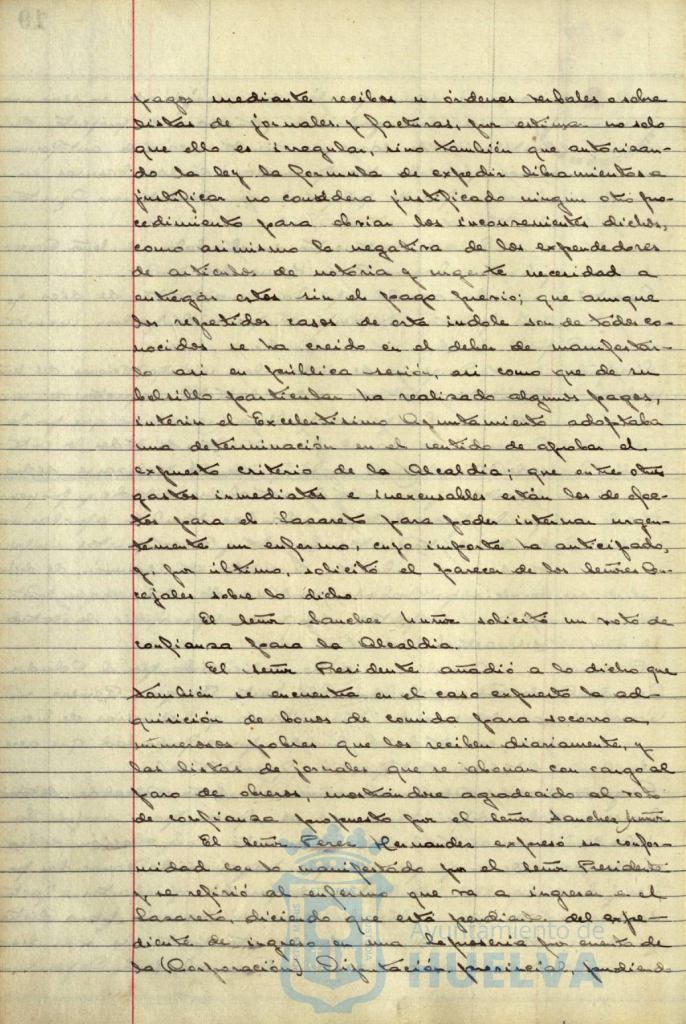 pagos mediante recibos u órdenes verbales o sobre
listas de jornales y facturas, por estimar no solo
que ello es irregular, sino también que autorizan-
do la ley la formula de expedir libramientos a
justificar no considera justificado ningun oto pro-
cedimiento para obviar los inconvenientes dichos,
como asimismo la negativa de los expendedores
de artículos de notoria y urgente necesidad a
entregar estos sin el pago previo; que aunque
los repetidos casos de esta indole son de todos co-
nocidos se ha creido en el deber de manifestar-
lo asi en pública sesión, asi como que de su
bolsillo particular ha realizado algunos pagos,
interin el Excelentísimo Ayuntamiento adoptaba
una determinación en el sentido de aprobar el
expuesto criterio de la Alcaldía; que entre otros
gastos inmediatos e inexcusables están los de efec-
tos para el Lazareto para poder internar urgen-
temente un enfermo, cuyo importe ha anticipado,
y, por último, solicitó el parecer de los Señores Con-
cejales sobre lo dicho.
El Señor Sanchez Muñoz solicitó un voto de
confianza para la Alcaldía.
El Señor Presidente añadió a lo dicho que
también se encuentra en el caso expuesto la ad-
quisición de bonos de comida para socorro a
numerosos pobres que los reciben diariamente, y
las listas de jornales que se abonan con cargo al
paro de obreros, mostándose agradecido al voto
de confianza propuesto por el Señor Sanchez Muñoz
El Señor Perez Hernandez expresó su confor-
midad con lo manifestado por el Señor Presidente
y se refirió al enfermo que va a ingresar en el
Lazareto, diciendo que está pendiente del expe-
diente de ingreso en una leprosería por cuenta de
la (Corporación) Diputación provincial, pudiendo
Ayuntamiento de
HUELVA